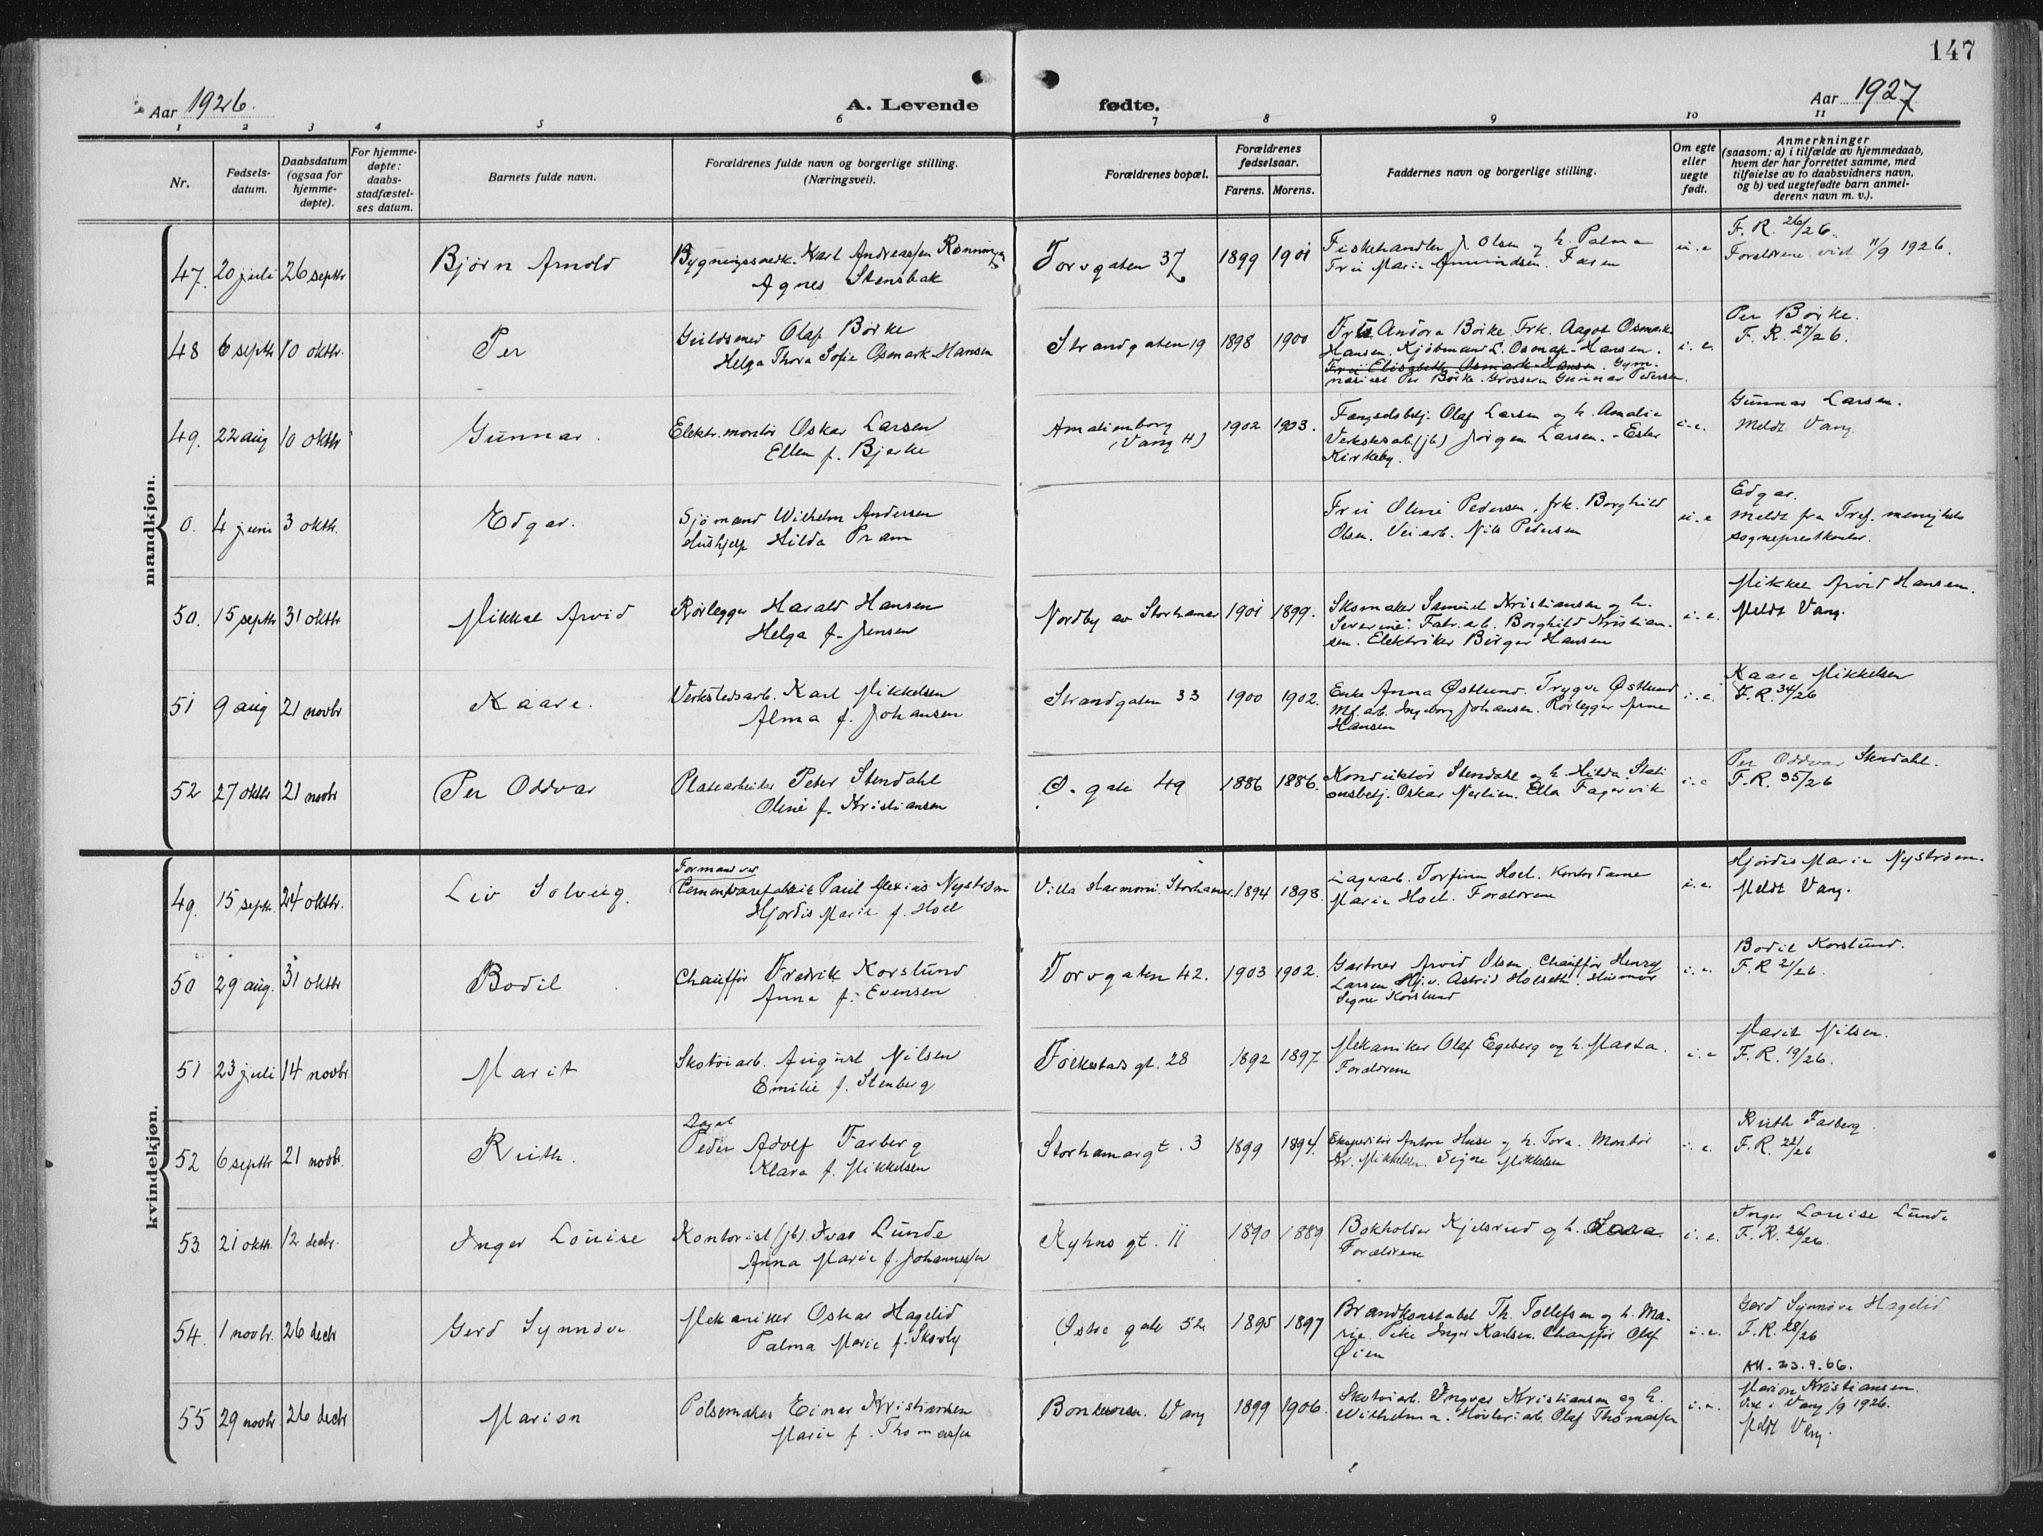 147
Aar 1926.
A. Levende fødte.
Aar 1927
1 2 3 4 5 6 7 8 9 10 11
Nr.
Fødsels-
datum.
Daabsdatum
(ogsaa for
hjemme-
døpte).
For hjemme-
døpte:
daabs-
stadfæstel-
ses datum.
Barnets fulde navn.
Forældrenes fulde navn og borgerlige stilling.
(Næringsvei).
Forældrenes bopæl.
Forældrenes
fødselsaar.
Farens. Morens.
Faddernes navn og borgerlige stilling.
Om egte
eller
uegte
født.
Anmerkninger
(saasom: a) i tilfælde av hjemmedaab,
hvem der har forrettet samme, med
tilføielse av to daabsvidners navn,
og b) ved uegtefødte barn anmel-
derens navn m. v.).
mandkjøn.
47. 20 juli 26 septbr Bjørn Arnold
Karl Andreassen Rønningen
Agnes Stensbak
Torvgaten 37 1899 1901
Fiskehandler J. Olsen og h. Palma
Fru Marie Amundsen. Faren
u. e
F. R. 26/26.
Forældrene viet 11/9 1926.
48 6 septbr 10 oktbr. Per
Guldsmed Olaf Børke
Helga Thora Sofie Osmark-Hansen
Strandgaten 19 1898 1900
Andora Børke. Frk. Aagot Osmark
Hansen. Kjøbmand L. Osmark-Hansen.
Fru Elisabeth Osmark-Hansen. Gym-
nasiast Per Børke. Grosserer Gunnar Pedersen.
i. e.
Per Børke.
F. R. 27/26.
49. 22 aug 10 oktbr Gunnar.
Elektr. montør Oskar Larsen
Ellen f. Bjerke
Amalienborg
(Vang H) 1902 1903.
Fængselsbetj. Olaf Larsen og h. Amalie
Jørgen Larsen. - Ester
Kirkeby.
i. e.
Gunnar Larsen.
Meldt Vang.
0. 4 juni 3 oktbr. Edgar.
Sjømand Wilhelm Andersen
Hushjelp Hilda Pram
Fru Oline Pedersen, frk. Borghild
Olsen. Veiarb. Nils Pedersen
u. e
Edgar.
Meldt fra Tref. menighets
sogneprestkontor.
50. 15 septbr 31 oktbr Mikkel Arvid
Rørlegger Harald Hansen
Helga f. Jensen
Nordby av Storhamar 1901 1899.
Skomaker Samuel Kristiansen og h.
Severine. Fabr. arb. Borghild Kristian-
sen. Elektriker Birger Hansen
i. e.
Mikkel Arvid Hansen.
Meldt Vang.
51 9 aug 21 novbr Kaare.
Verkstedsarb. Karl Mikkelsen
Alma f. Johansen
Strandgaten 33 1900 1902.
Enke Anna Østlund. Trygve Østlund
Ingeborg Johansen. Rørlegger Arne
Hansen
i. e.
Kaare Mikkelsen
F. R. 34/26
52 27 oktbr 21 novbr Per Oddvar
Platearbeider Peter Stendahl
Oline f. Kristiansen
Ø. gate 49 1886 1886.
Konduktør Stendahl og h. Hilda. Stati
onsbetj. Oskar Nerlien. Ella Fagervik
i. e
Per Oddvar Stendahl.
F. R. 35/26
kvindekjøn.
49. 15 septbr. 24 oktbr. Liv Solveig.
Formand ved
Cementvarefabrik Paul Alexius Nystrøm
Hjørdis Marie f. Hoel
Villa Harmoni. Storhamar. 1894 1898.
Lagerarb. Torfinn Hoel. Kontordame
Marie Hoel. Forældrene
i. e.
Hjørdis Marie Nystrøm.
Meldt Vang.
50 29 aug. 31 oktbr Bodil
Chauffør Fredrik Korslund
Anna f. Evensen
Torvgaten 42. 1903 1902.
Gartner Arvid Olsen. Chauffør Henry
Larsen. Hj.v. Astrid Holseth. Husmor
Signe Korslund
i. e.
Bodil Korslund.
F. R 21/26.
51 23 juli 14 novbr. Marit
Skotøiarb. August Nilsen
Emilie f. Stenberg
Folkestads gt. 28 1892 1897
Mekaniker Olaf Egeberg og h. Marta.
Forældrene
i. e
Marit Nilsen.
F. R. 19/26.
52 6 septbr 21 novbr. Ruth.
Peder Adolf Farberg
Klara f. Mikkelsen
Storhamargt. 3 1899 1894.
Ekspeditør Anton Huse og h. Tora. Montør
Kr. Mikkelsen. Signe Mikkelsen
i. e.
Ruth Farberg
F. R. 22/26
53 21 oktbr. 12 decbr. Inger Louise
Kontorist (jb). Ivar Lunde
Anna Marie f. Johannessen
Kyhns gt. 11 1890 1889
Bokholder Kjelsrud og h.
Forældrene
i. e.
Inger Louise Lunde
F. R. 26/26.
54. 1 novbr. 26 decbr Gerd Synnøve
Mekaniker Oskar Hagelid
Palma Marie f. Skovly
Østre gate 52 1895 1897
Brandkonstabel Th. Tollefsen og h. Ma-
rie. Pike Inger Karlsen. Chauffør Olaf
Øien
i. e.
Gerd Synnøve Hagelid
F. R. 28/26
Att. 23.9.66.
55 29 novbr 26 decbr Marion
Pølsemaker Einar Kristiansen
Marie f. Thomassen
Vang 1899 1906.
Skotøiarb. Yngvar Kristiansen og h.
Wilhelmina. Høvleriarb. Olaf Thomassen
i. e.
Marion Kristiansen.
Viet i Vang /9 1926.
Meldt Vang.